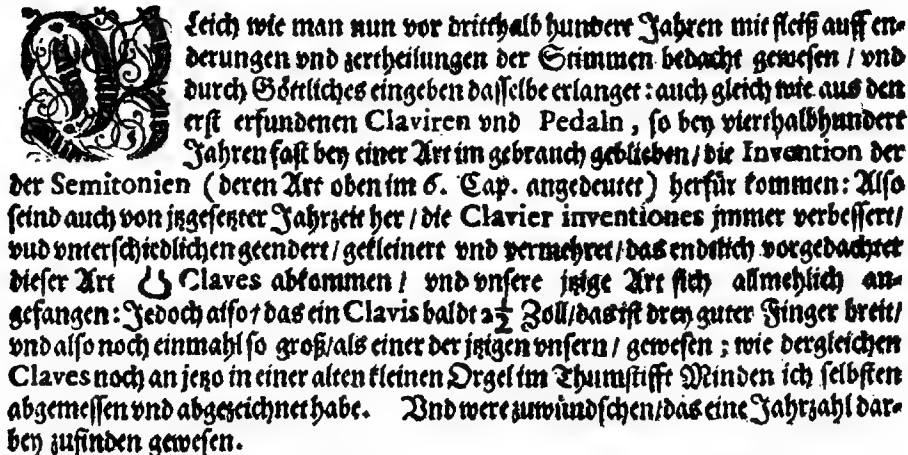 GLeich wie man nun vor dritthalb hundert Jahren mit fleiß auff en-
derungen vnd zertheilungen der Stimmen bedacht gewesen / vnd
durch Göttliches eingeben dasselbe erlanget : auch gleich wie aus den
erst erfundenen Claviren vnd Pedaln , so bey vierthalbhundert
Jahren fast bey einer Art im gebrauch geblieben / die Invention der
der Semitonien (deren Art oben im 6. Cap. angedeutet) herfür kommen : Also
seind auch von jtzgesetzter Jahrzeit her / die Clavier inventiones jmmer verbessert /
vnd vnterschiedlichen geendert / gekleinert vnd vermehret / das endtlich vorgedachter
dieser Art Claves abkommen / vnd vnsere jtzige Art sich allmehlich an-
gefangen : Jedoch also / das ein Clavis baldt 2½ Zoll / das ist drey guter Finger breit /
vnd also noch einmahl so groß / als einer der jtzigen vnsern / gewesen ; wie dergleichen
Claves noch an jetzo in einer alten kleinen Orgel im Thumstifft Minden ich selbsten
abgemessen vnd abgezeichnet habe. Vnd were zuwündschen / das eine Jahrzahl dar-
bey zufinden gewesen.